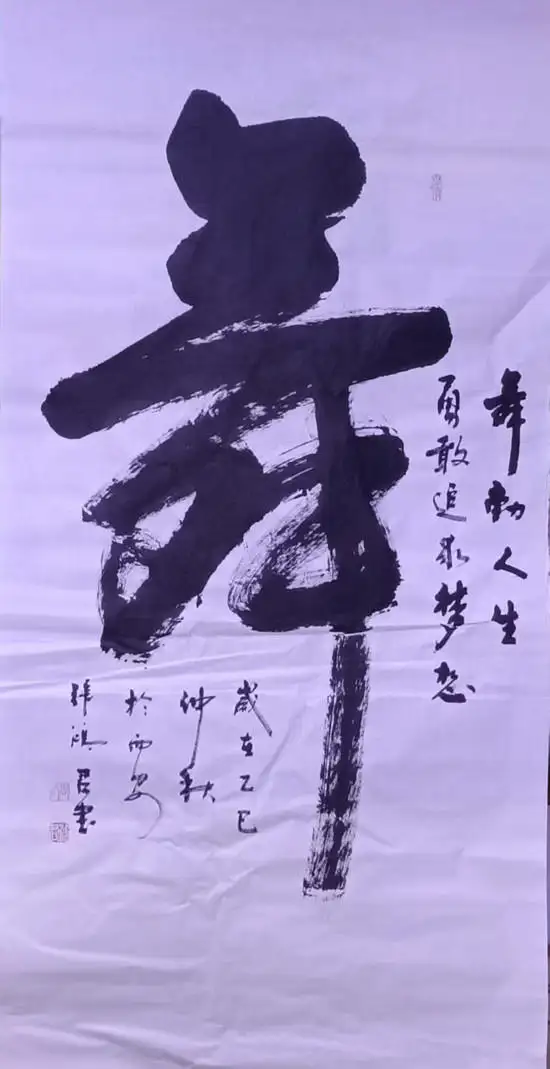 舞
舞動人生
勇敢追求梦想
歲在乙巳
仲秋
於西安
君書